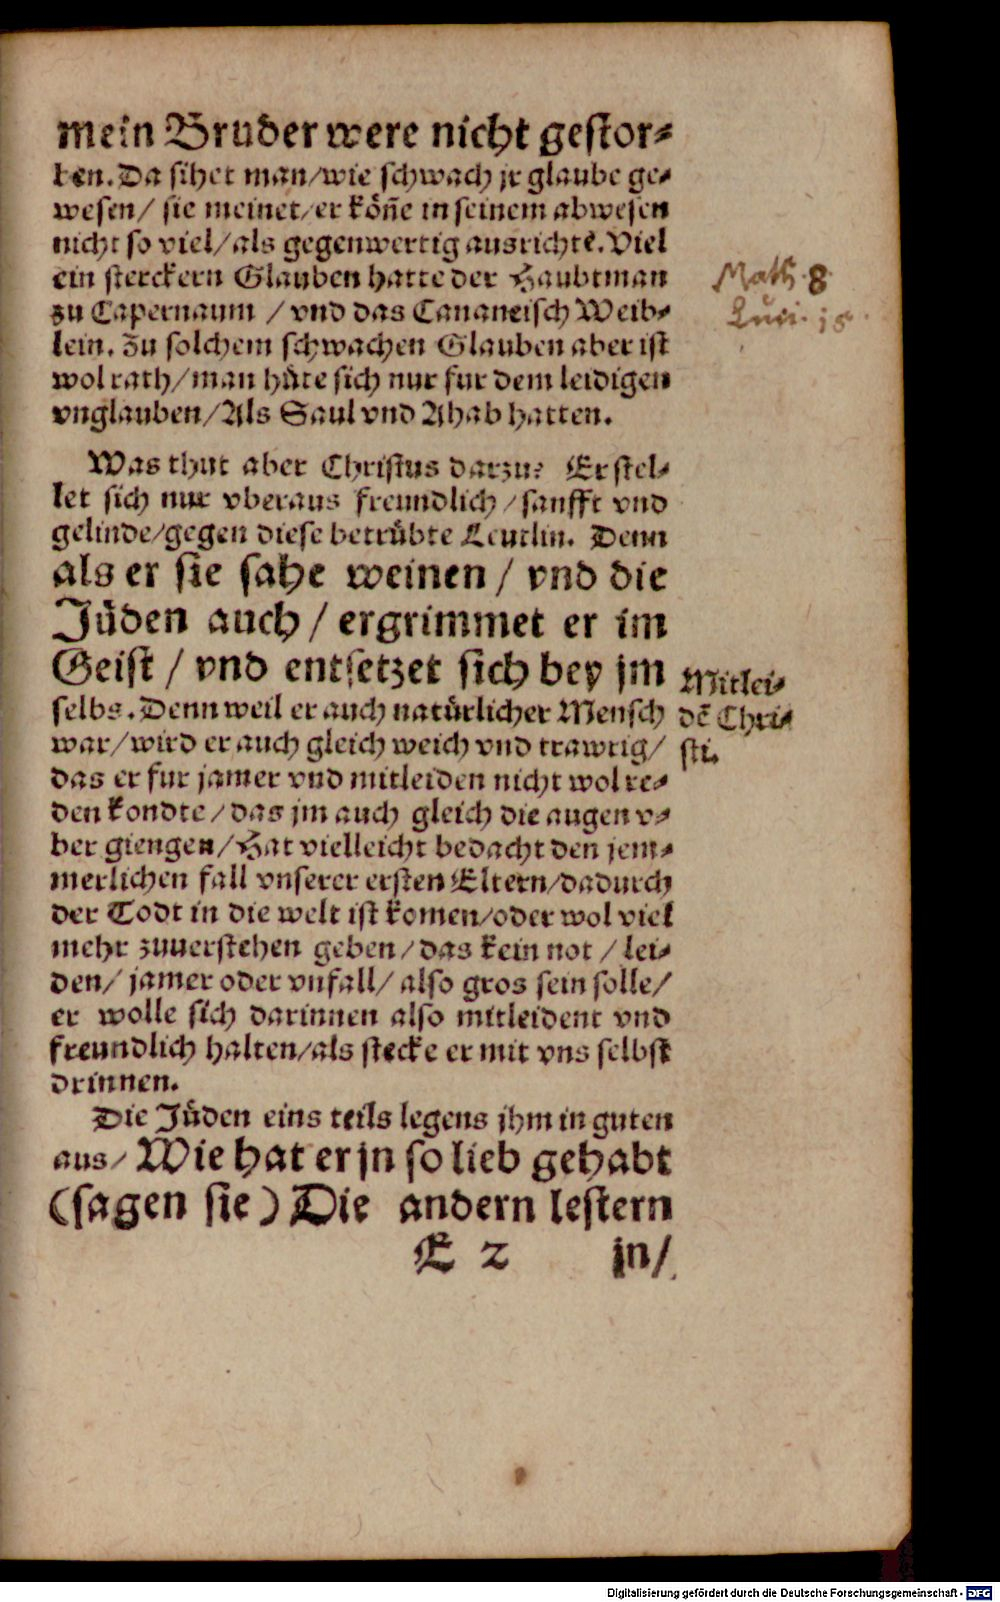 mein Bruder were nicht gestor⸗
ben. Da sihet man/wie schwach jr glaube ge⸗
wesen/ sie meinet/er köñe in seinem abwesen
nicht so viel/als gegenwertig ausrichtē. Viel
ein sterckern Glauben hatte der Haubtman
zu Capernaum / vnd das Cananeisch Weib⸗
lein. Zu solchem schwachen Glauben aber ist
wol rath/man hüte sich nur fur dem leidigen
vnglauben/Als Saul vnd Ahab hatten.
Math 8.
Was thut aber Christus darzu? Er stel⸗
let sich nur vberaus freundlich/sanfft vnd
gelinde/gegen diese betrübte Leutlin. Denn
als er sie sahe weinen / vnd die
Jüden auch / ergrimmet er im
Geist / vnd entsetzet sich bey jm
selbs. Denn weil er auch natürlicher Mensch
war/wird er auch gleich weich vnd trawrig/
das er fur jamer vnd mitleiden nicht wol re⸗
den kondte/das jm auch gleich die augen v⸗
ber giengen/Hat vielleicht bedacht den jem⸗
merlichen fall vnserer ersten Eltern/dadurch
der Todt in die welt ist komen/oder wol viel
mehr zuuerstehen geben/das kein not / lei⸗
den/ jamer oder vnfall/ also gros sein solle/
er wolle sich darinnen also mitleident vnd
freundlich halten/als stecke er mit vns selbst
drinnen.
Mitlei⸗
dē Chri⸗
sti.
Die Jüden eins teils legens jhm in guten
aus/ Wie hat er jn so lieb gehabt
(sagen sie) Die andern lestern
E 2 jn/
Digitalisierung gefördert durch die Deutsche Forschungsgemeinschaft - DFG